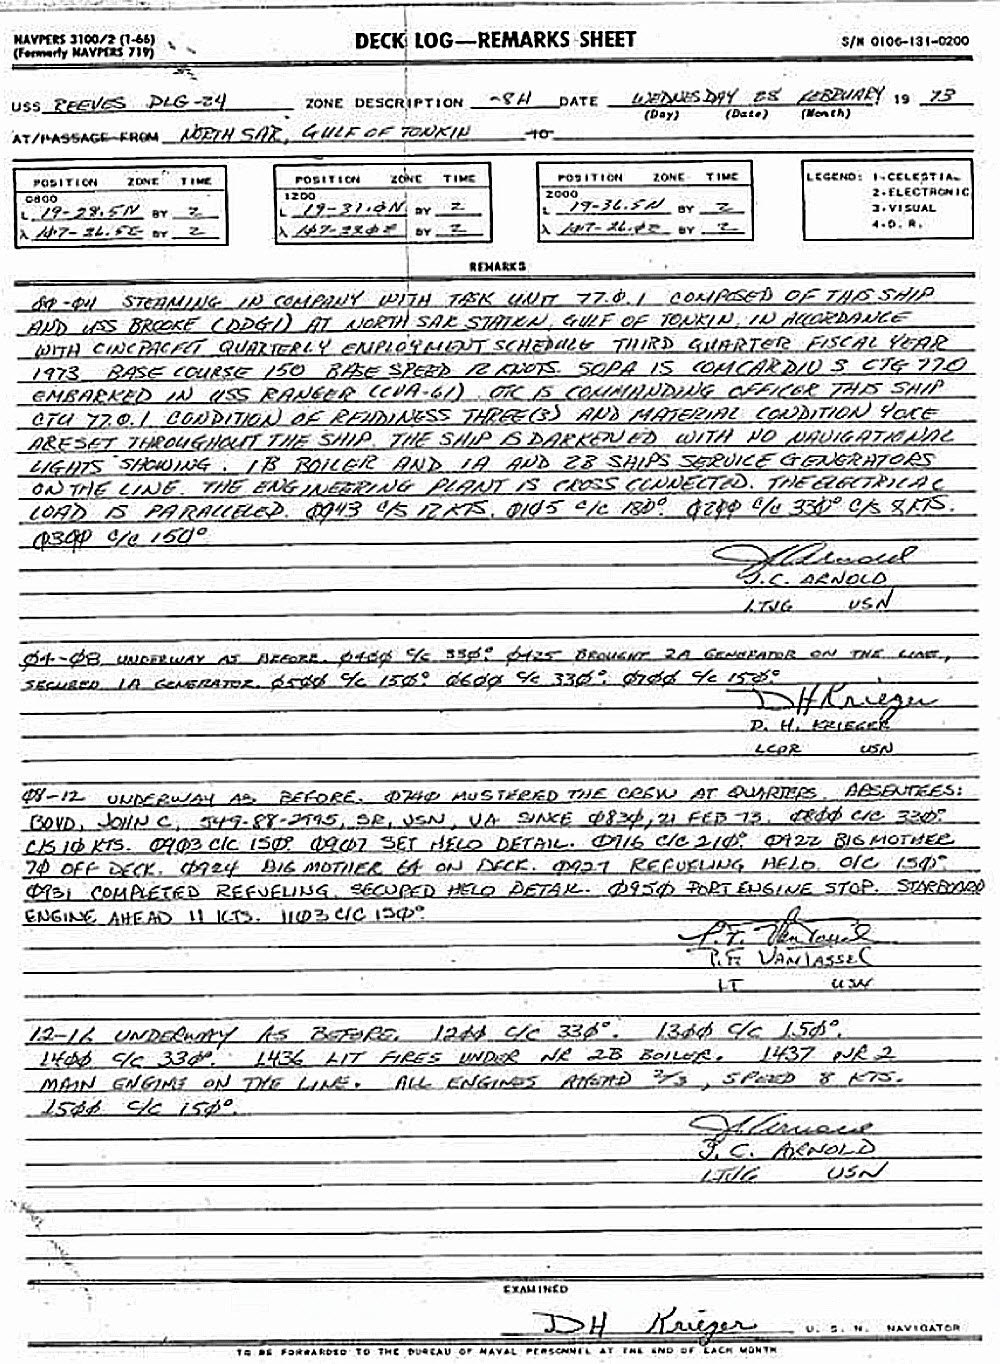 NAVPERS 3100/2 (1-66)
(Formerly NAVPERS 719)
DECK LOG—REMARKS SHEET
S/N 0106-131-0200
USS REEVES DLG-24 ZONE DESCRIPTION -8H DATE WEDNESDAY 28 FEBRUARY 19 73
(Day) (Date) (Month)
AT/PASSAGE FROM NORTH SAR, GULF OF TONKIN TO
POSITION ZONE TIME
0800
L 19-28.5N BY 2
λ 107-26.5E BY 2
POSITION ZONE TIME
1200
L 19-31.0N BY 2
λ BY 2
POSITION ZONE TIME
2000
L 19-36.5N BY 2
λ 107-26.0E BY 2
LEGEND: 1-CELESTIAL
2-ELECTRONIC
3-VISUAL
4-D. R.
REMARKS
00-04 STEAMING IN COMPANY WITH TASK UNIT 77.0.1 COMPOSED OF THIS SHIP
AND USS BROOKE (DDG1) AT NORTH SAR STATION, GULF OF TONKIN, IN ACCORDANCE
WITH CINCPACFLT QUARTERLY EMPLOYMENT SCHEDULE THIRD QUARTER FISCAL YEAR
1973 BASE COURSE 150 BASE SPEED 12 KNOTS. SOPA IS COMCARDIV 3 CTG 77.0
EMBARKED IN USS RANGER (CVA-61) OTC IS COMMANDING OFFICER THIS SHIP
CTU 77.0.1 CONDITION OF READINESS THREE(3) AND MATERIAL CONDITION YOKE
ARE SET THROUGHOUT THE SHIP. THE SHIP IS DARKENED WITH NO NAVIGATIONAL
LIGHTS SHOWING. 1B BOILER AND 1A AND 2B SHIPS SERVICE GENERATORS
ON THE LINE. THE ENGINEERING PLANT IS CROSS CONNECTED. THE ELECTRICAL
LOAD IS PARALLELED. 0043 C/S 12 KTS. 0105 C/C 180°. 0200 C/C 330° C/S 8 KTS.
0300 C/C 150°
J.C. Arnold
J.C. ARNOLD
LTJG USN
04-08 UNDERWAY AS BEFORE. 0400 C/C 330°. 0425 BROUGHT 2A GENERATOR ON THE LINE,
SECURED 1A GENERATOR. 0500 C/C 150°. 0600 C/C 330°. 0700 C/C 150°
D H Krieger
D. H. KRIEGER
LCDR USN
08-12 UNDERWAY AS BEFORE. 0740 MUSTERED THE CREW AT QUARTERS. ABSENTEES:
BOYD, JOHN C, SR, USN, UA SINCE 0830, 21 FEB 73. 0800 C/C 330°
C/S 10 KTS. 0903 C/C 150°. 0907 SET HELO DETAIL. 0916 C/C 210°. 0922 BIG MOTHER
70 OFF DECK. 0924 BIG MOTHER 64 ON DECK. 0927 REFUELING HELO. C/C 150°.
0931 COMPLETED REFUELING. SECURED HELO DETAIL. 0950 PORT ENGINE STOP. STARBOARD
ENGINE AHEAD 11 KTS. 1103 C/C 150°.
P.F. VanTassel
P.F. VANTASSEL
LT USN
12-16 UNDERWAY AS BEFORE. 1200 C/C 330°. 1300 C/C 150°.
1400 C/C 330°. 1436 LIT FIRES UNDER NR 2B BOILER. 1437 NR 2
MAIN ENGINE ON THE LINE. ALL ENGINES AHEAD 2/3, SPEED 8 KTS.
1500 C/C 150°.
J.C. Arnold
J. C. ARNOLD
LTJG USN
EXAMINED
DH Krieger U. S. N. NAVIGATOR
TO BE FORWARDED TO THE BUREAU OF NAVAL PERSONNEL AT THE END OF EACH MONTH